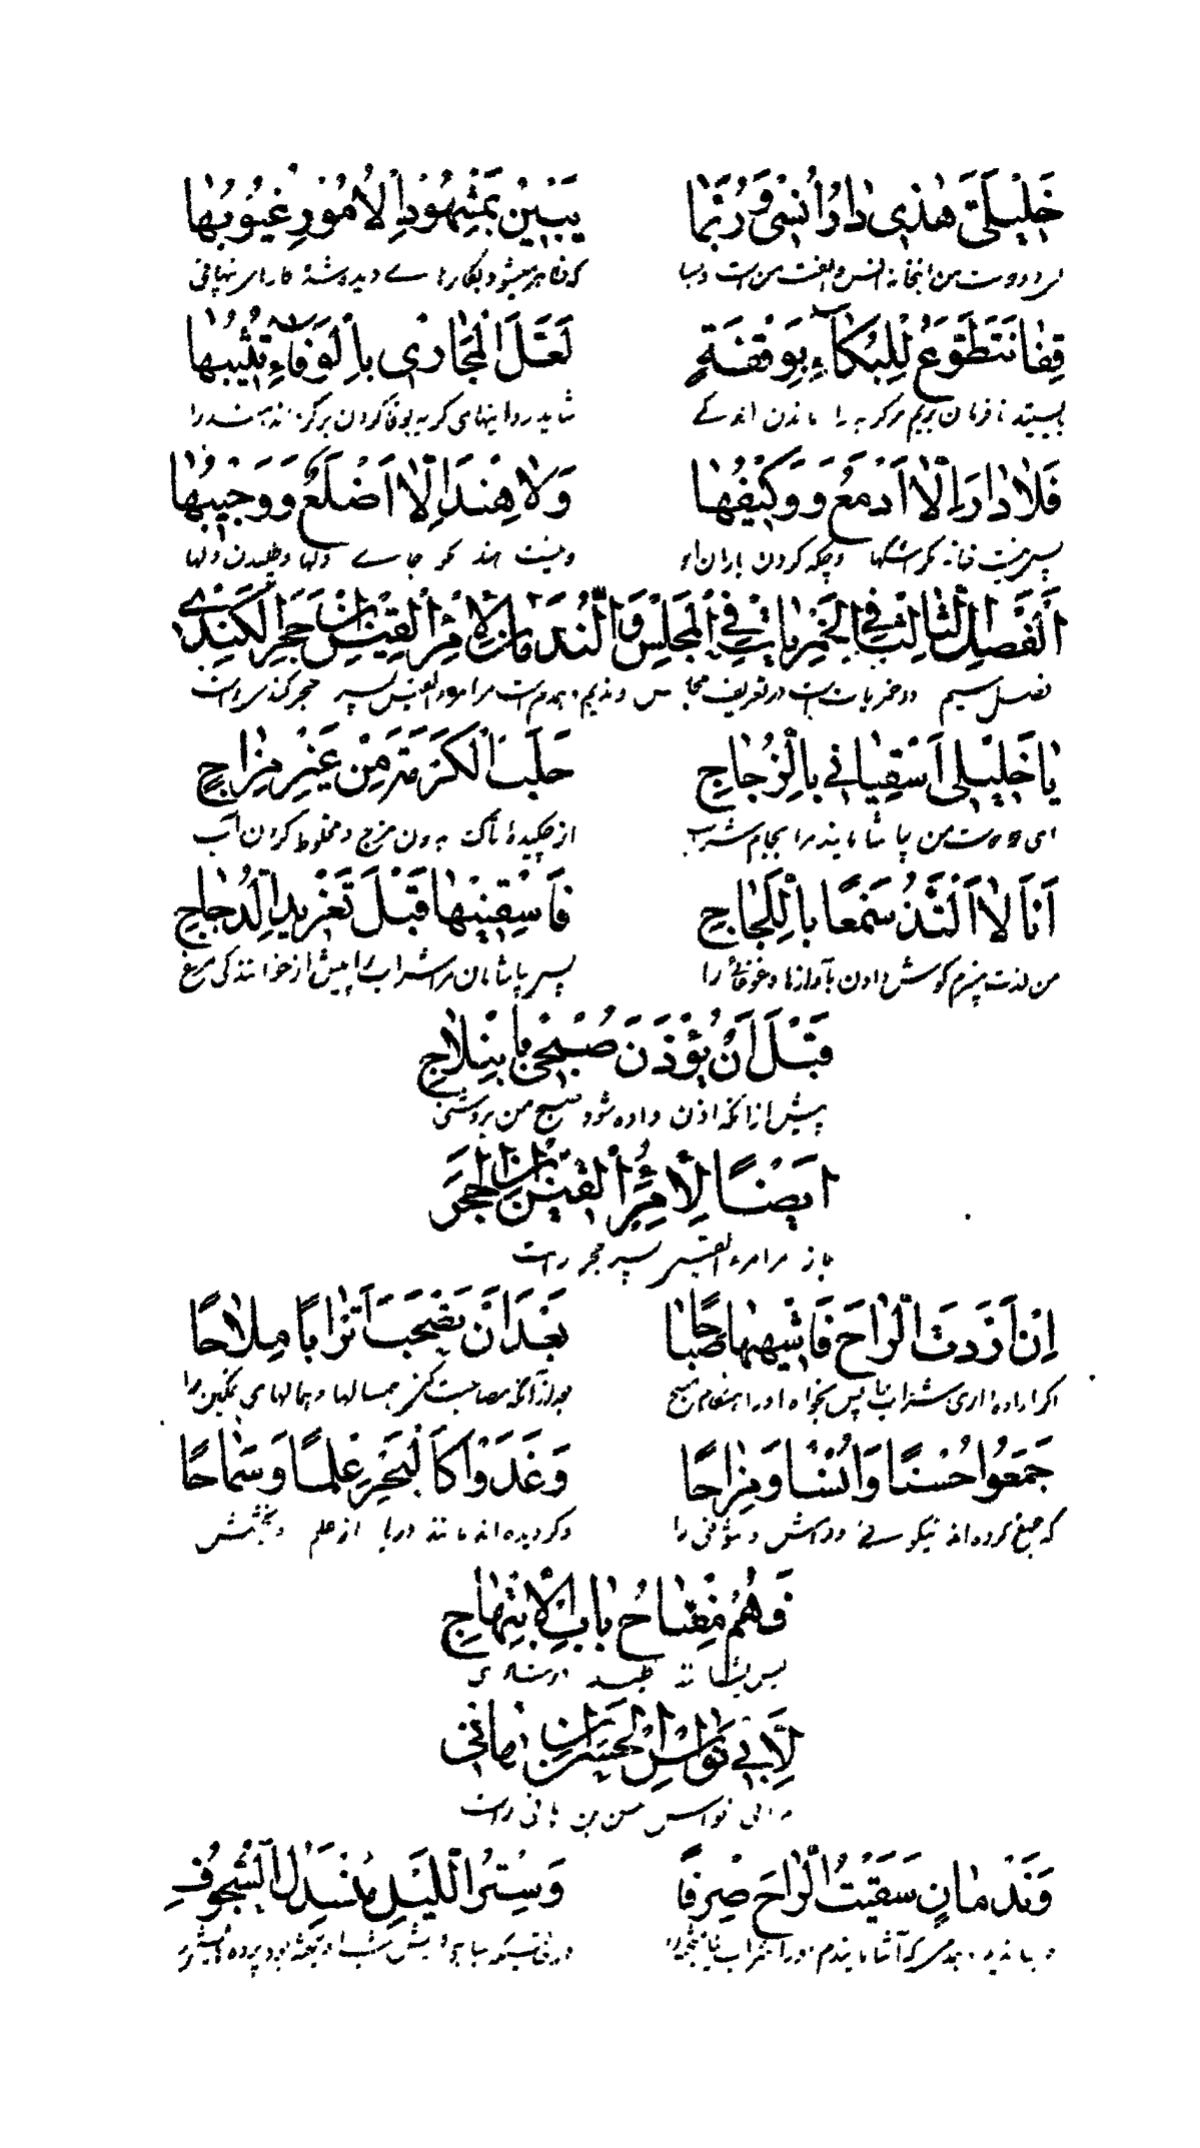 خَلِيلَيَّ هٰذِي دَارُ أُنْسِي وَرُبَّمَا يَبِينُ بِمَشْهُودِ الْأُمُورِ غُيُوبُهَا
ای دو دوست من اینخانه انس و الفت من است و بسا که ظاهر میشود بکارهای دیده شده کارهای نهانی
قِفَا نَتَطَوَّعْ لِلْبُكَاءِ بِوَقْفَةٍ لَعَلَّ الْمَجَارِي بِالْوَفَاءِ تُثِيبُهَا
بایستید تا فرمان بریم مر گریه را ماندن اندکے شاید روانیهای گریه بوفا کردن
فَلَا دَارَ إِلَّا أَدْمُعٌ وَوَكِيفُهَا وَلَا هِنْدَ إِلَّا أَضْلُعٌ وَوَجِيبُهَا
پس نیست خانه مگر اشکها و چکه کردن باران او و نیست هند مگر جاے دلها و طپیدن دلها
أَلْفَصْلُ الثَّالِثُ فِي الْخَمْرِيَاتِ فِي الْمَجْلِسِ وَالنُّدَمَاءِ لِامْرِءِ الْقَيْسِ بْنِ حَجَرِ الْكِنْدِي
فصل سیم در خمریات است در تعریف مجلس و ندیم و همدم است مر امرء القیس پسر حجر کندی راست
يَا خَلِيلَيَّ اسْقِيَانِي بِالزُّجَاجِ حَلَبَ الْكَرْمَةِ مِنْ غَيْرِ مِزَاجٍ
ای دو دوست من بیاشامانید مرا بجام شراب از چکیدهٔ تاک بدون مزج و مخلوط کردن آب
أَنَا لَا أَلْتَذُّ سَمْعًا بِاللَّجَاجِ فَاسْقِنِيهَا قَبْلَ تَغْرِيدِ الدُّجَاجِ
من لذت نبرم گوش دادن بآوازها و غوغای را پس بیاشامان مرا شراب را پیش از خوانندگی مرغ
قَبْلَ أَنْ يُؤْذَنَ صُبْحِي بِانْبِلَاجِ
پیش از آنکه اذن داده شود صبح من بروشنی
أَيْضًا لِامْرِءِ الْقَيْسِ بْنِ الْحَجَرِ
باز مر امرء القیس پسر حجر راست
إِنْ أَرَدْتَ الرَّاحَ فَاشْهَهَا صَبَاحًا بَعْدَ أَنْ تَصْحَبَ أَتْرَابًا مِلَاحًا
اگر اراده داری شراب را پس بخواه او را هنگام صبح بعد از آنکه مصاحبت کنی همسالها و همالهای نمکین را
جَمَعُوا حُسْنًا وَأُنْسًا وَمِزَاحًا وَغَدَوْا كَالْبَحْرِ عِلْمًا وَسَمَاحًا
که جمع کرده‌اند نیکوئی و دانش و شوخی را و گردیده‌اند مانند دریا از علم و بخشش
فَهُمُ مِفْتَاحُ بَابِ الْابْتِهَاجِ
پس ایشانند کلید در شادی
لِأَبِي نُوَاسِ الْحَسَنِ بْنِ هَانِي
مر ابی نواس حسن بن هانی راست
وَنَدْمَانٍ سَقَيْتُ الرَّاحَ صِرْفًا وَسِتْرُ اللَّيْلِ مُنْسَدِلُ السُّجُوفِ